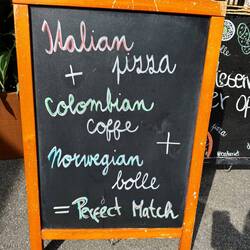 Italian
+ pizza
Colombian
coffe
+
Norwegian
bolle
= Perfect Match